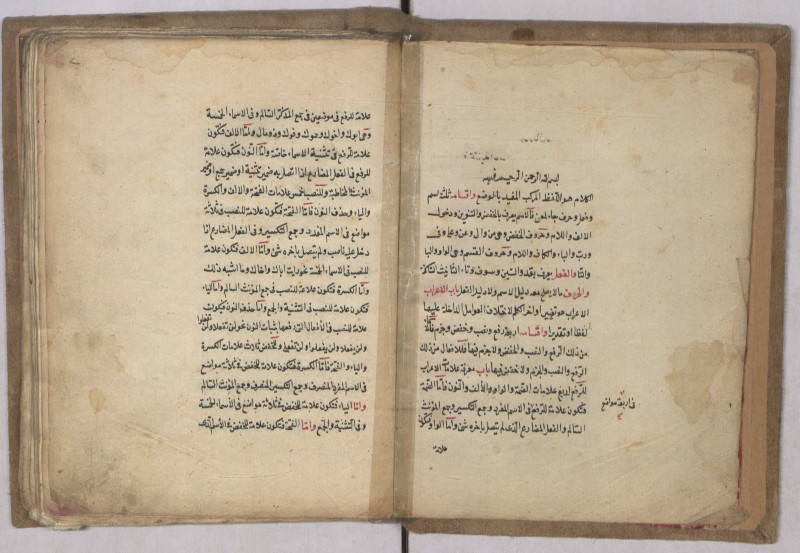 بسم الله الرحمن الرحيم
الكلام هو اللفظ المركب المفيد بالوضع واقسامه ثلثة اسم
وفعل وحرف جاء لمعنى فالاسم يعرف بالخفض والتنوين ودخول
الالف واللام وحروف الخفض وهي من والى وعن وعلى وفى
ورب والباء والكاف واللام وحروف القسم وهى الواو والباء
والتاء والفعل يعرف بقد والسين وسوف وتاء التانيث الساكنة
والحرف مالا يصلح معه دليل الاسم ولا دليل الفعل باب الاعراب
الاعراب هو تغيير اواخر الكلم لاختلاف العوامل الداخلة عليها
لفظا او تقديرا واقسامه اربعة رفع ونصب وخفض وجزم فللاسماء
من ذلك الرفع والنصب والخفض ولا جزم فيها فللافعال من ذلك
الرفع والنصب والجزم ولا خفض فيها باب معرفة علامات الاعراب
للرفع اربع علامات الضمة والواو والالف والنون فاما الضمة
فتكون علامة للرفع فى الاسم المفرد وجمع التكسير وجمع المؤنث
السالم والفعل المضارع الذى لم يتصل باخره شئ واما الواو فتكون
علامة
فى اربعة مواضع
علامة للرفع فى موضعين فى جمع المذكر السالم وفى الاسماء الخمسة
وهى ابوك واخوك وحموك وفوك وذو مال واما الالف فتكون
علامة للرفع فى تثنية الاسماء خاصة واما النون فتكون علامة
للرفع فى الفعل المضارع اذا اتصل به ضمير تثنية او ضمير جمع او ضمير
المؤنث المخاطبة وللنصب خمس علامات الفتحة والالف والكسرة
والياء وحذف النون فاما الفتحة فتكون علامة للنصب فى ثلاثة
مواضع فى الاسم المفرد وجمع التكسير وفى الفعل المضارع اذا
دخل عليه ناصب ولم يتصل باخره شئ واما الالف فتكون علامة
للنصب فى الاسماء الخمسة نحو رايت اباك واخاك وما اشبه ذلك
واما الكسرة فتكون علامة للنصب فى جمع المؤنث السالم واما الياء
فتكون علامة للنصب فى التثنية والجمع واما حذف النون فيكون
علامة للنصب فى الافعال التى رفعها بثبات النون نحو لن تفعلا ولن تفعلوا
ولن يفعلا ولن يفعلوا ولن تفعلى وللخفض ثلاث علامات الكسرة
والياء والفتحة فاما الكسرة فتكون علامة للخفض فى ثلاثة مواضع
فى الاسم المفرد المنصرف وجمع التكسير المنصرف وجمع المؤنث السالم
واما الياء فتكون علامة للخفض فى ثلاثة مواضع فى الاسماء الخمسة
وفى التثنية والجمع واما الفتحة فتكون علامة للخفض فى الاسم الذى